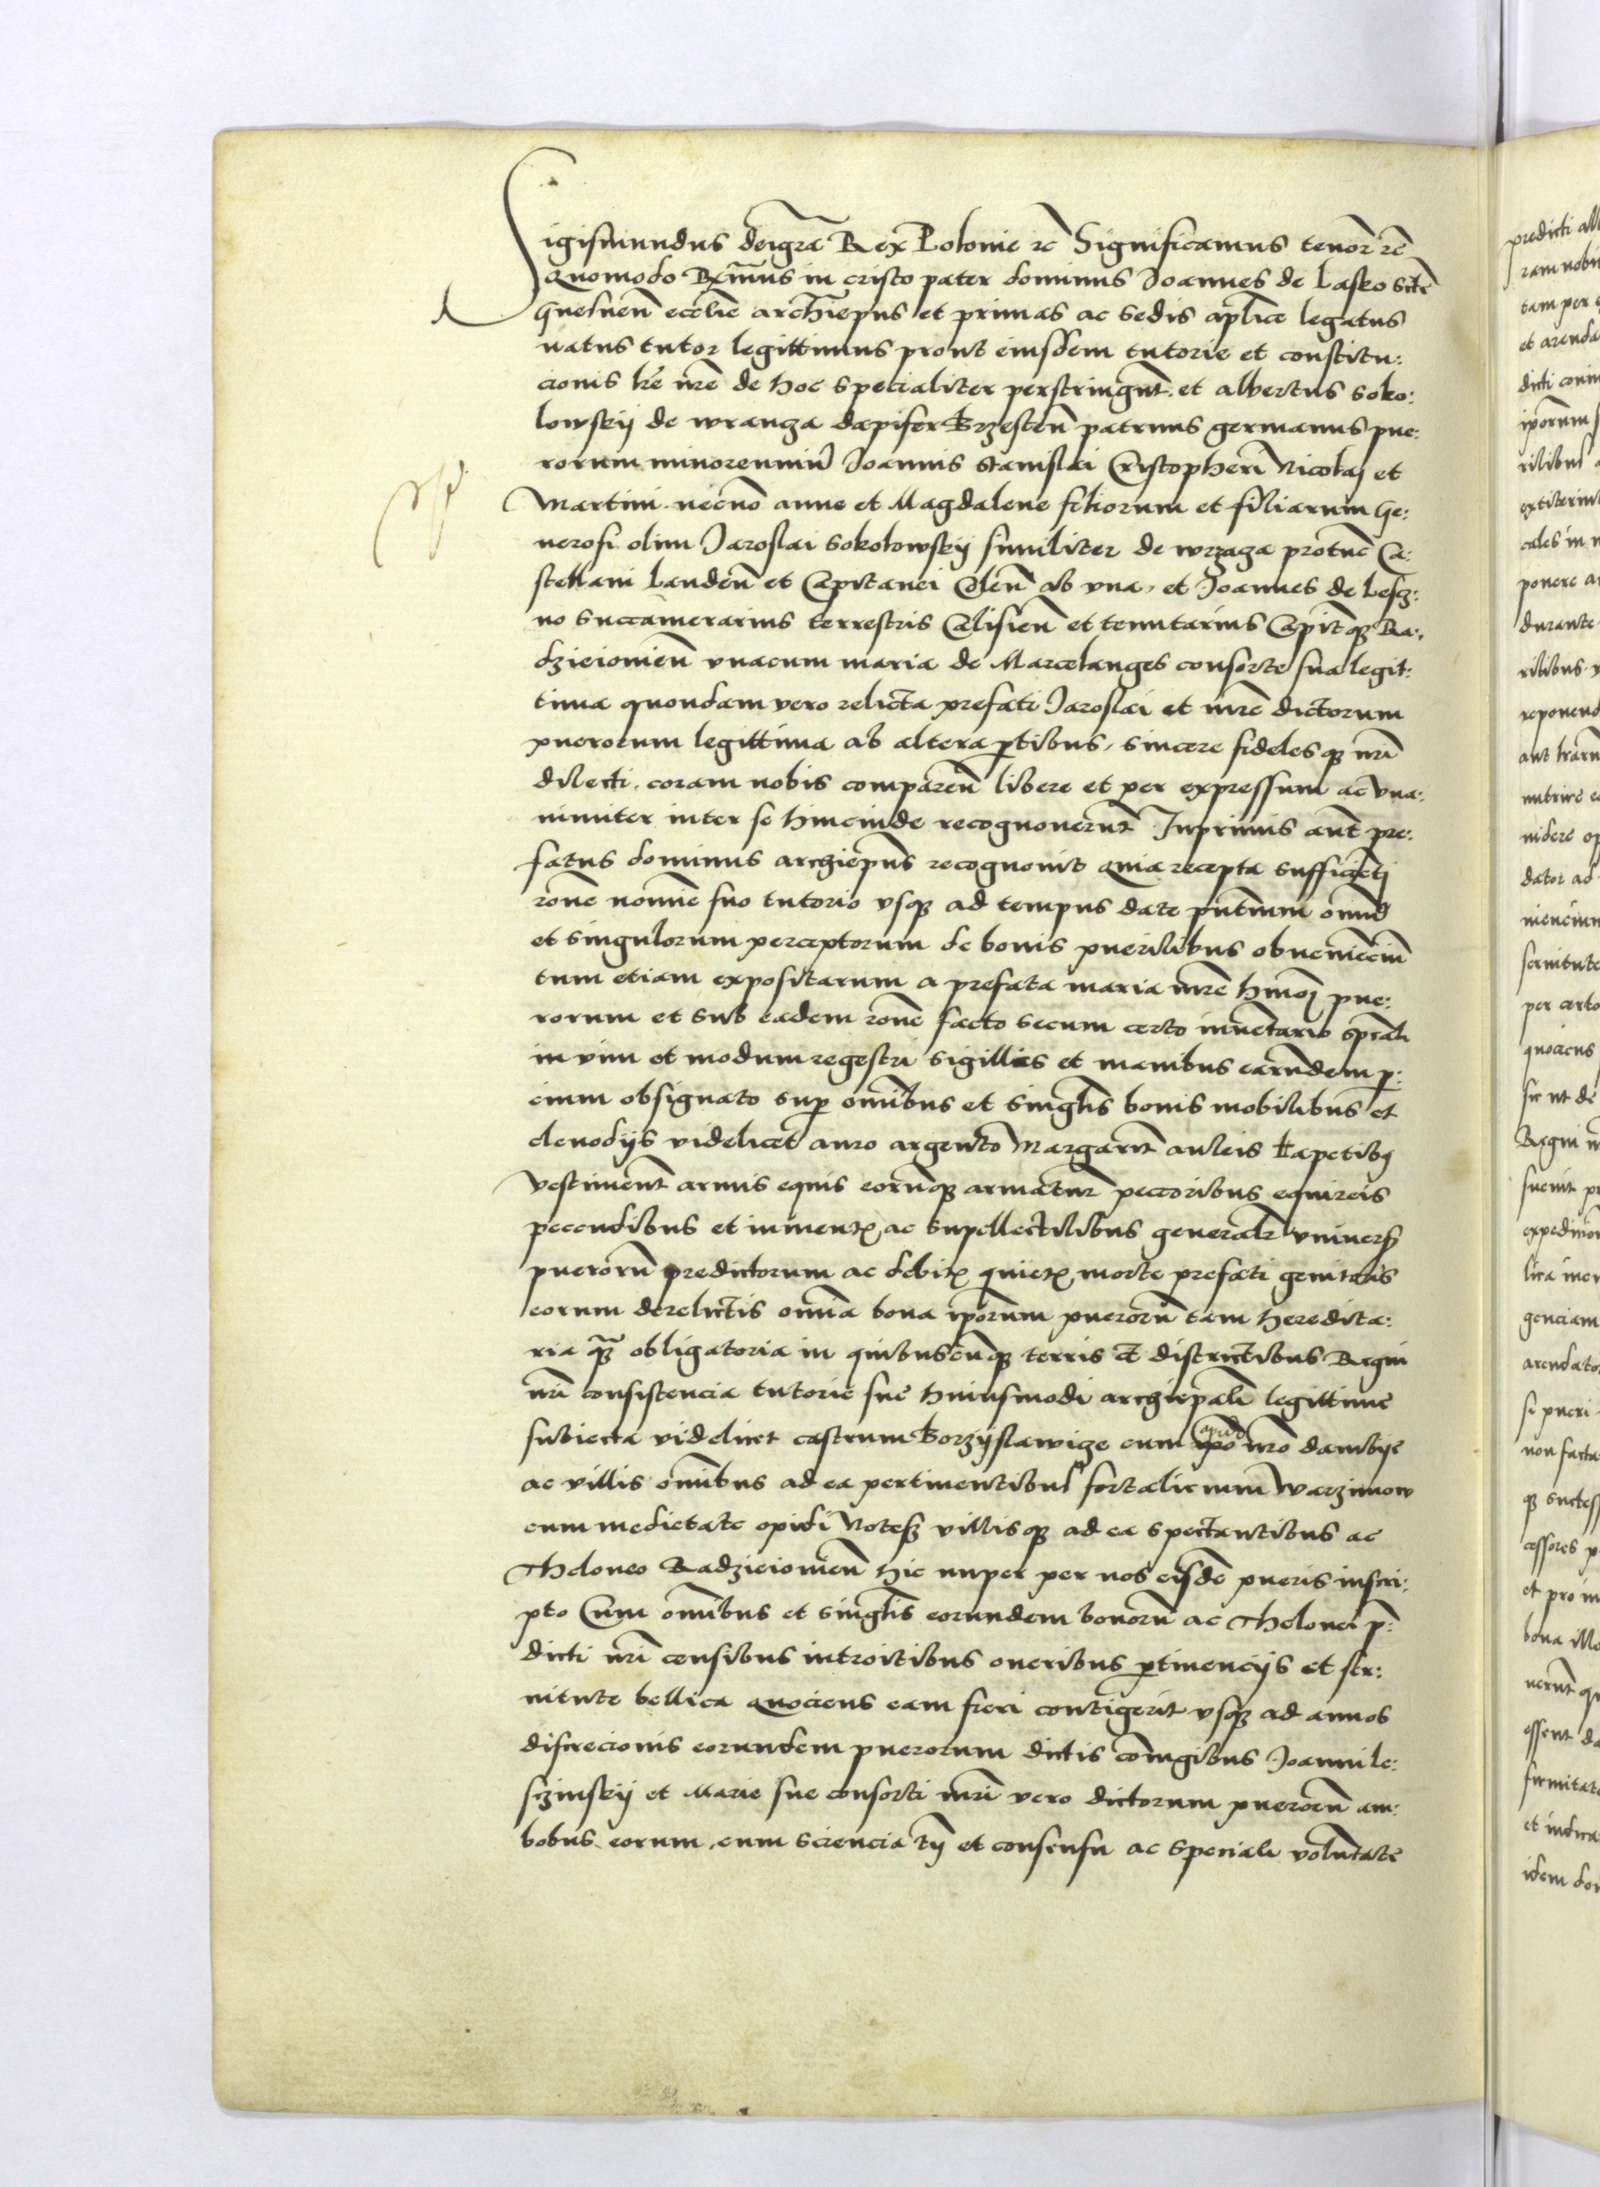 Sigismundus deigrā Rex Polonie ꝛc Significamus tenoꝛ ꝛc
Quomodo Rx̄mus in cristo pater dominus Joannes de Lasko sctē
Gnesnen̄ eccl̄ie archiep̄us et primas ac sedis ap̄lice legatus
natus tutor legittimus prout eiusdem tutorie et constitu:
cionis lr̄e nr̄e de hoc specialiter perstringunt. et albertus soko:
lowskij de wranza dapifer Brzesten̄ patruus germanus pue:
rorum minorenniū Joannis Stanislai Cristopheri Nicolaj et
Martini necnō anne et Magdalene filiorum et filiarum Ge:
nerosi olim Jaroslai sokolowskij similiter de wrzaza protūc Ca:
stellani Landen̄ et Capitanei Colen̄ ab vna, et Joannes de Lesz:
no succamerarius terrestris Calisien̄ et tenutarius Capitꝫ Ra:
dzieiowien̄ vnacum maria de Marcelanges consorte sua legit:
tima quondam vero relicta prefati Jaroslai et mr̄e dictorum
puerorum legittima ab altera ꝑtibus, sincere fidelesqꝫ nr̄i
dilecti. coram nobis comparen̄ libere et per expressum ac vna:
nimiter inter se hincinde recognouerunt Inprimis aūt pre:
fatus dominus archiep̄us recognouit quia recepta sufficiēti
rōne nomine suo tutorio vsqꝫ ad tempus date pn̄tium omniū
et singulorum perceptorum de bonis puerilibus obueniēciū
tum etiam expositarum a prefata maria mr̄e hm̄oi pue:
rorum et sub eadem rōne facto secum certo inuētario spēali
in vim et modum regestri sigillis et manibus earundem ꝑ:
cium obsignato suꝑ omnibus et singulis bonis mobilibus et
clenodijs videlicet auro argento Margarit̄ auleis tapetibꝫ
vestiment̄ armis equis eorumqꝫ armatur̄ peccoribus equireis
pecudibus et iument̄, ac supellectilibus generalr̄ vniuers̄
puerorū predictorum ac debit̄ quiet̄ morte prefati genitoris
eorum derelictis omnia bona ip̄orum puerorū tam heredita:
ria qꝫ obligatoria in quibuscunqꝫ terris et districtibus Regni
nr̄i consistencia tutorie sue huiusmodi archiep̄ali legittime
subiecta videlicet castrum Borzyslawicze cum opido nr̄o dambije
ac villis omnibus ad ea pertinentibus fortalicium Warzimow
cum medietate opidi Notesz villisqꝫ ad ea spectantibus ac
Theloneo Radzieiowien̄ hic nuper per nos eisdē pueris inscri:
pto Cum omnibus et singulis eorundem bonorū ac Thelonei p̄:
dicti nr̄i censibus introitibus oneribus ꝑtinencijs et ser:
uitute bellica quociens eam fieri contigerit vsqꝫ ad annos
discrecionis eorundem puerorum dictis coniugibus Joanni le:
szinskij et Marie sue consorti mr̄i vero dictorum puerorū am:
bobus eorum, cum sciencia et consensu ac speciali voluntate